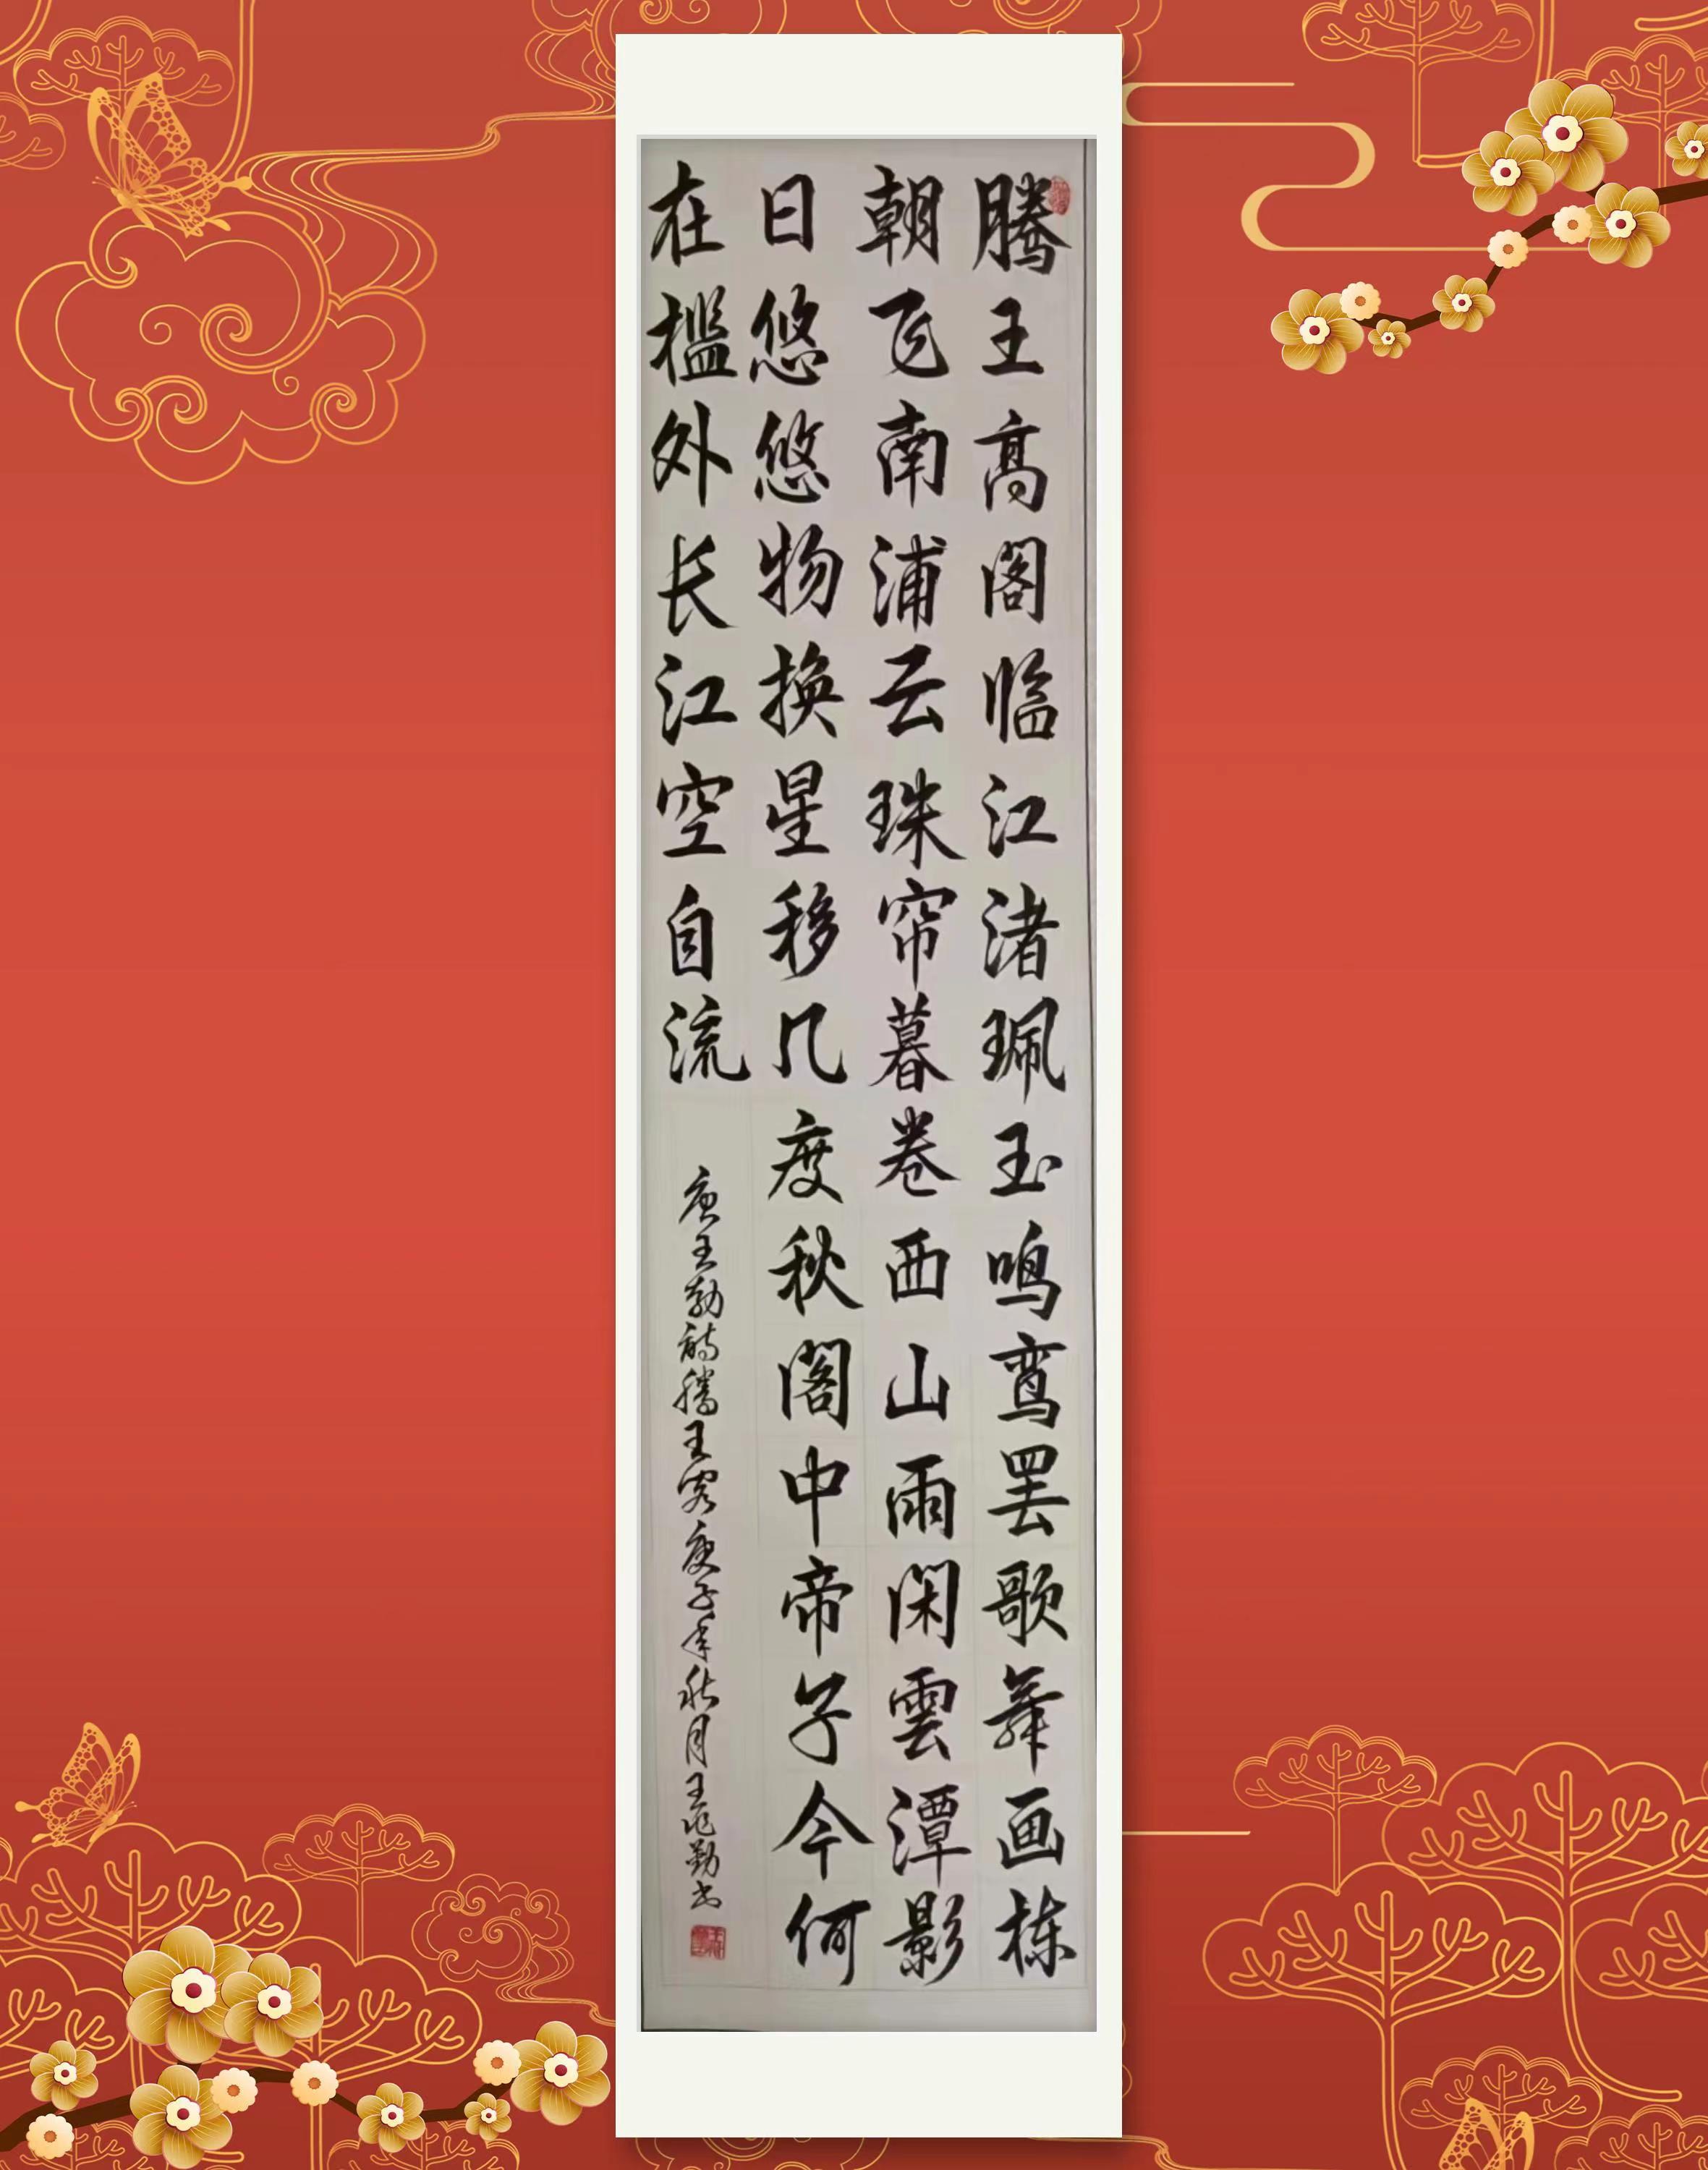 腾王高阁临江渚珮玉鸣鸾罢歌舞画栋
朝飞南浦云珠帘暮卷西山雨闲雲潭影
日悠悠物换星移几度秋阁中帝子今何
在槛外长江空自流
唐王勃诗腾王阁庚子年秋月王兆勤书